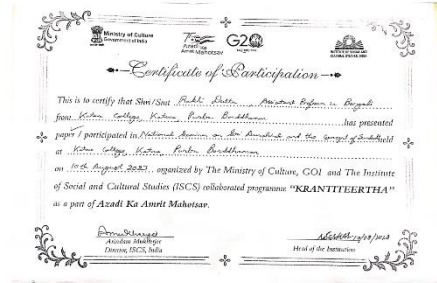 Ministry of Culture
Government of India
Azadi Ka
Amrit Mahotsav
G20
INSTITUTE OF SOCIAL AND
CULTURAL STUDIES
Certificate of Participation
This is to certify that Shri/Smt Pakhi Datta, Assistant Professor in Bengali
from Katwa College, Katwa, Purba Bardhaman has presented
paper / participated in National Seminar on Sri Aurobindo and the Concept of held
at Katwa College, Katwa, Purba Bardhaman
on 10th August 2023 organized by The Ministry of Culture, GOI and The Institute
of Social and Cultural Studies (ISCS) collaborated programme "KRANTITEERTHA"
as a part of Azadi Ka Amrit Mahotsav.
Arindam Mukherjee
Director, ISCS, India
Head of the Institution